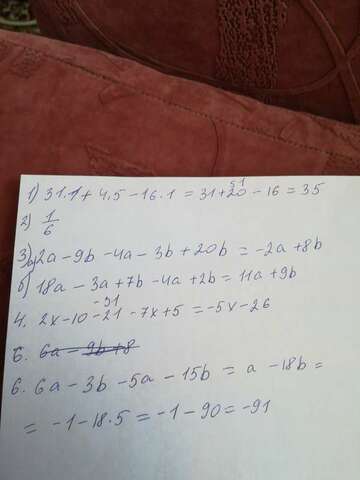 1) 31.1 + 4.5 - 16.1 = 31 + 20 - 16 = 35
51
2) 1/6
3) а) 2a - 9b - 4a - 3b + 20b = -2a + 8b
б) 18a - 3a + 7b - 4a + 2b = 11a + 9b
-31
4. 2x - 10 - 21 - 7x + 5 = -5x - 26
5. 6a - 9b + 8
6. 6a - 3b - 5a - 15b = a - 18b =
= -1 - 18.5 = -1 - 90 = -91